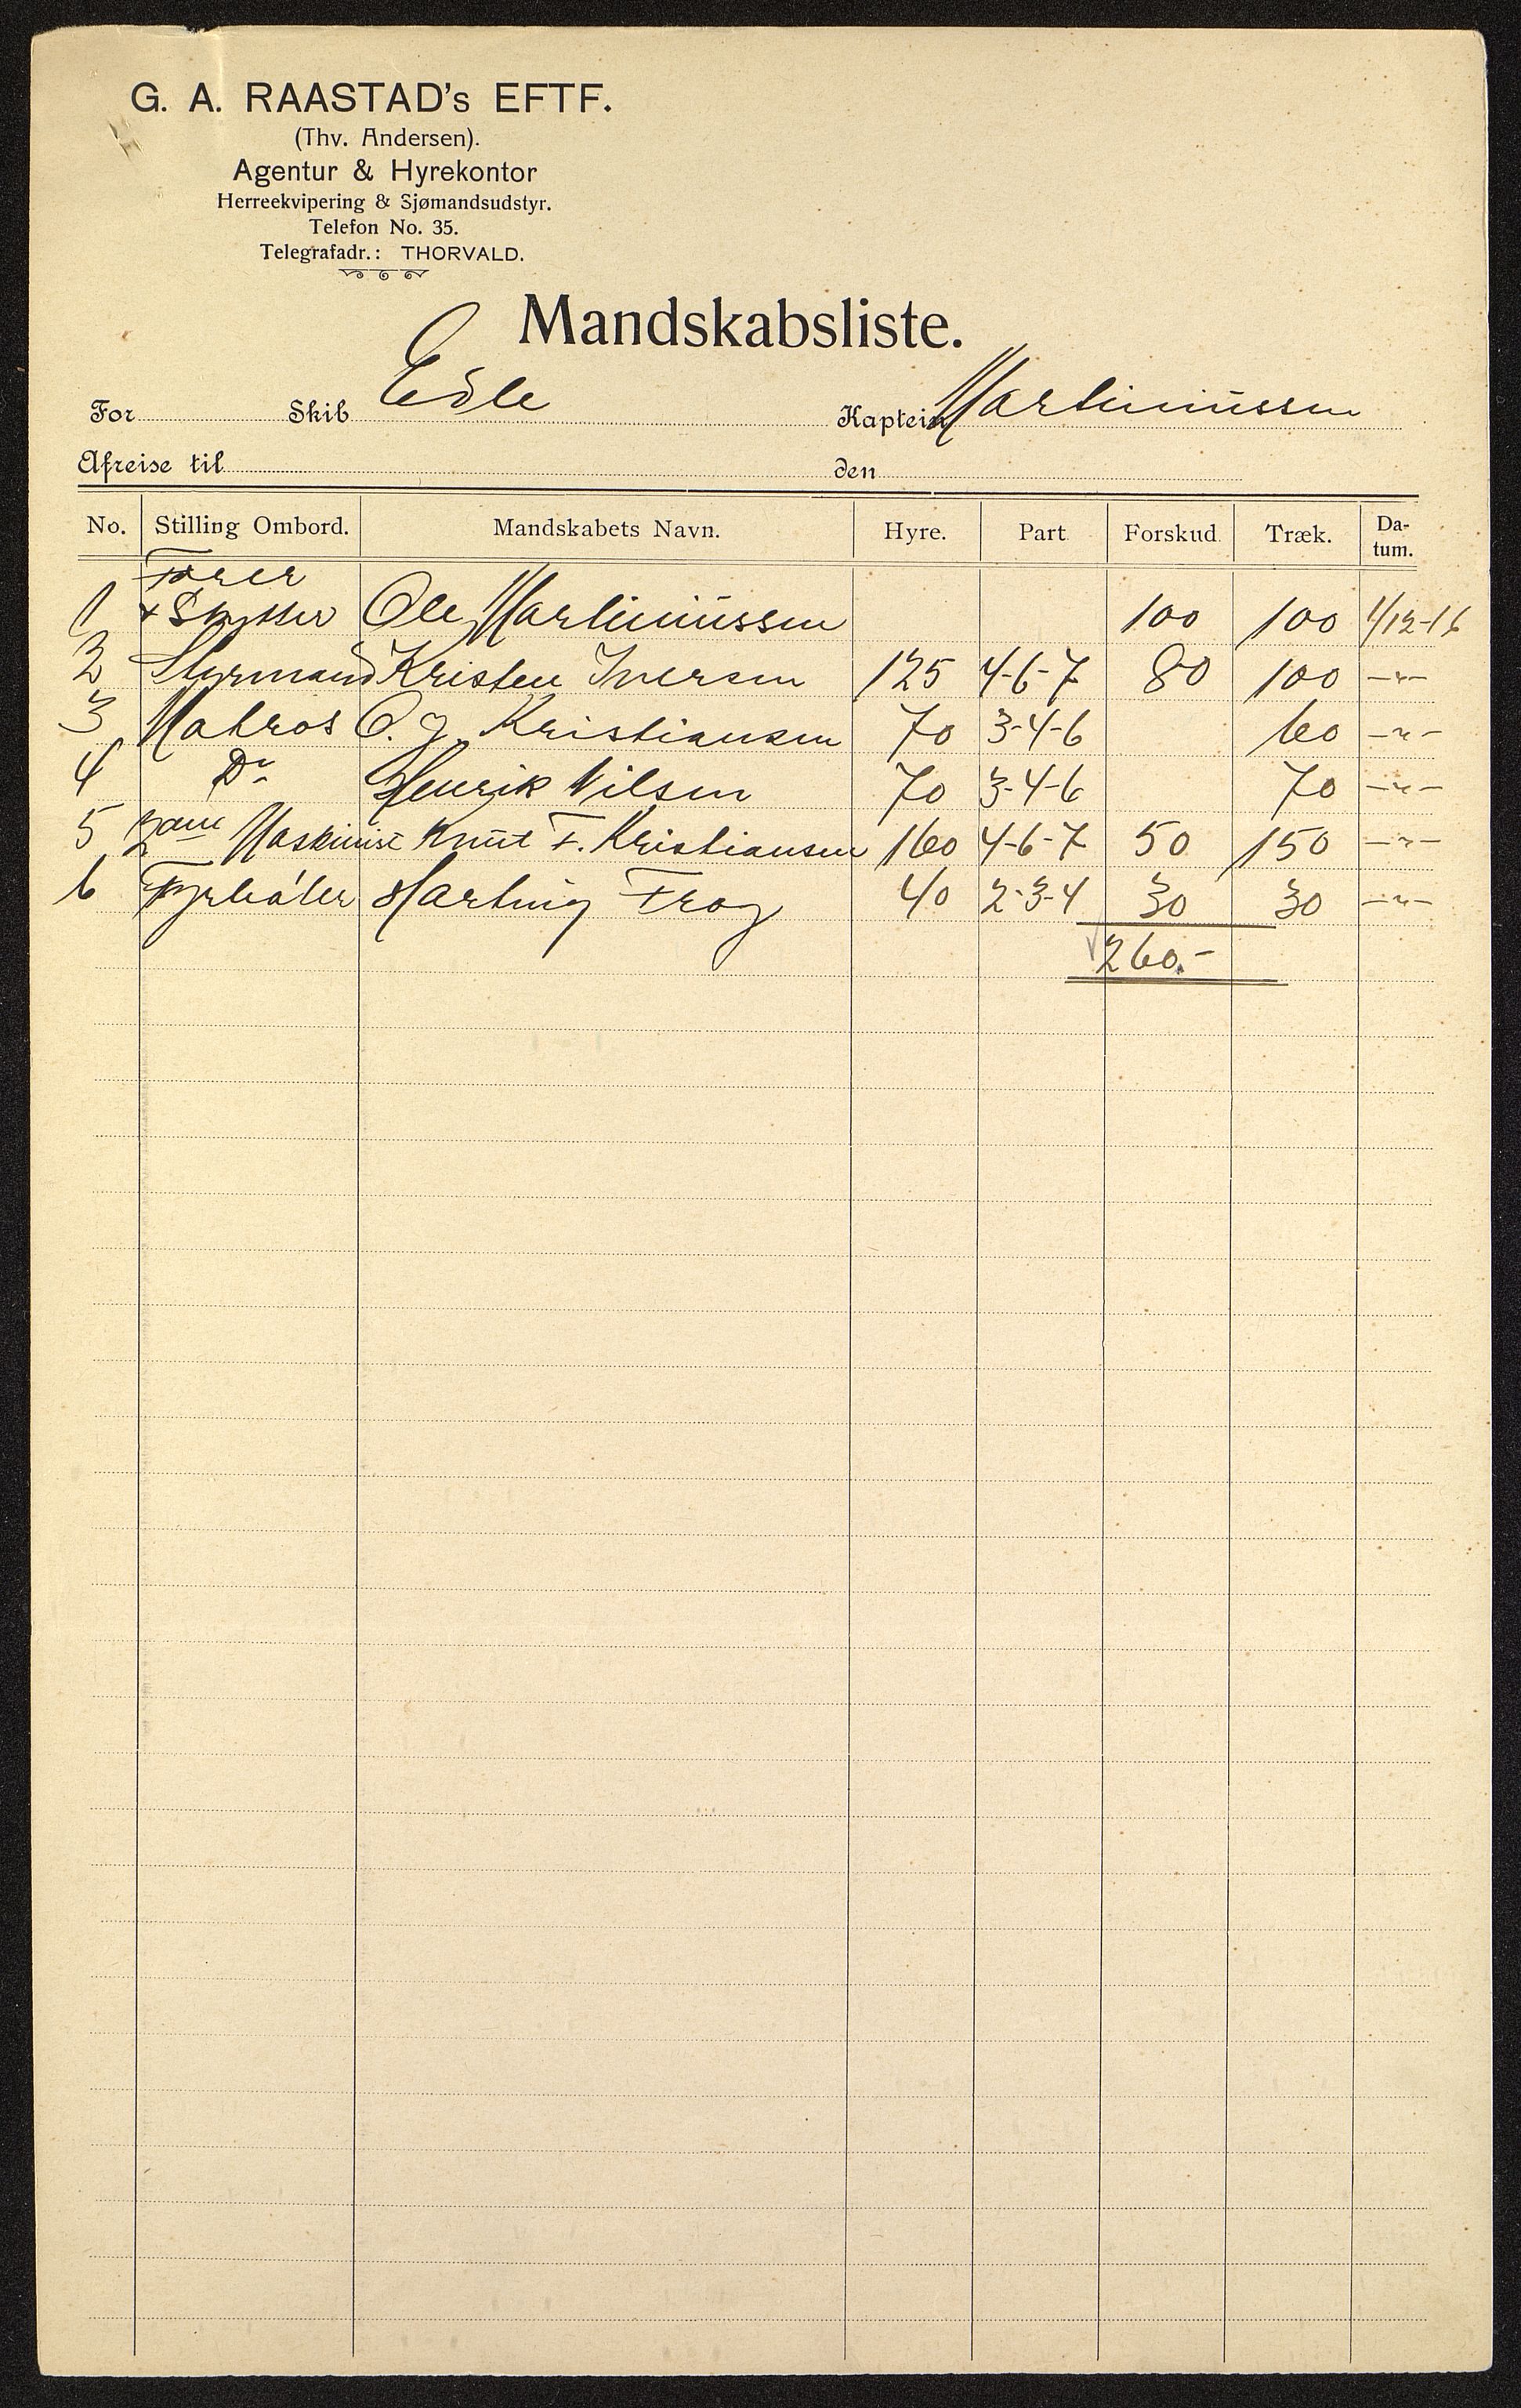 G. A. RAASTAD's EFTF.
(Thv. Andersen).
Agentur & Hyrekontor
Herreekvipering & Sjømandsudstyr.
Telefon No. 35.
Telegrafadr.: THORVALD.
Mandskabsliste.
For Skib Edle Kaptein Martiniussen
Afreise til den
No. Stilling Ombord. Mandskabets Navn. Hyre. Part Forskud Træk. Da-tum.
Fører
1 + Skytter Ole Martiniussen 100 100 1/12-16
2 Styrmand Kristen Iversen 125 4-6-7 80 100 -"-
3 Matros O. J. Kristiansen 70 3-4-6 60 -"-
4 Do Henrik Nilsen 70 3-4-6 70 -"-
5 2den Maskinist Knut F. Kristiansen 160 4-6-7 50 150 -"-
6 Fyrbøter Hartvig Frog 40 2-3-4 30 30 -"-
260.-